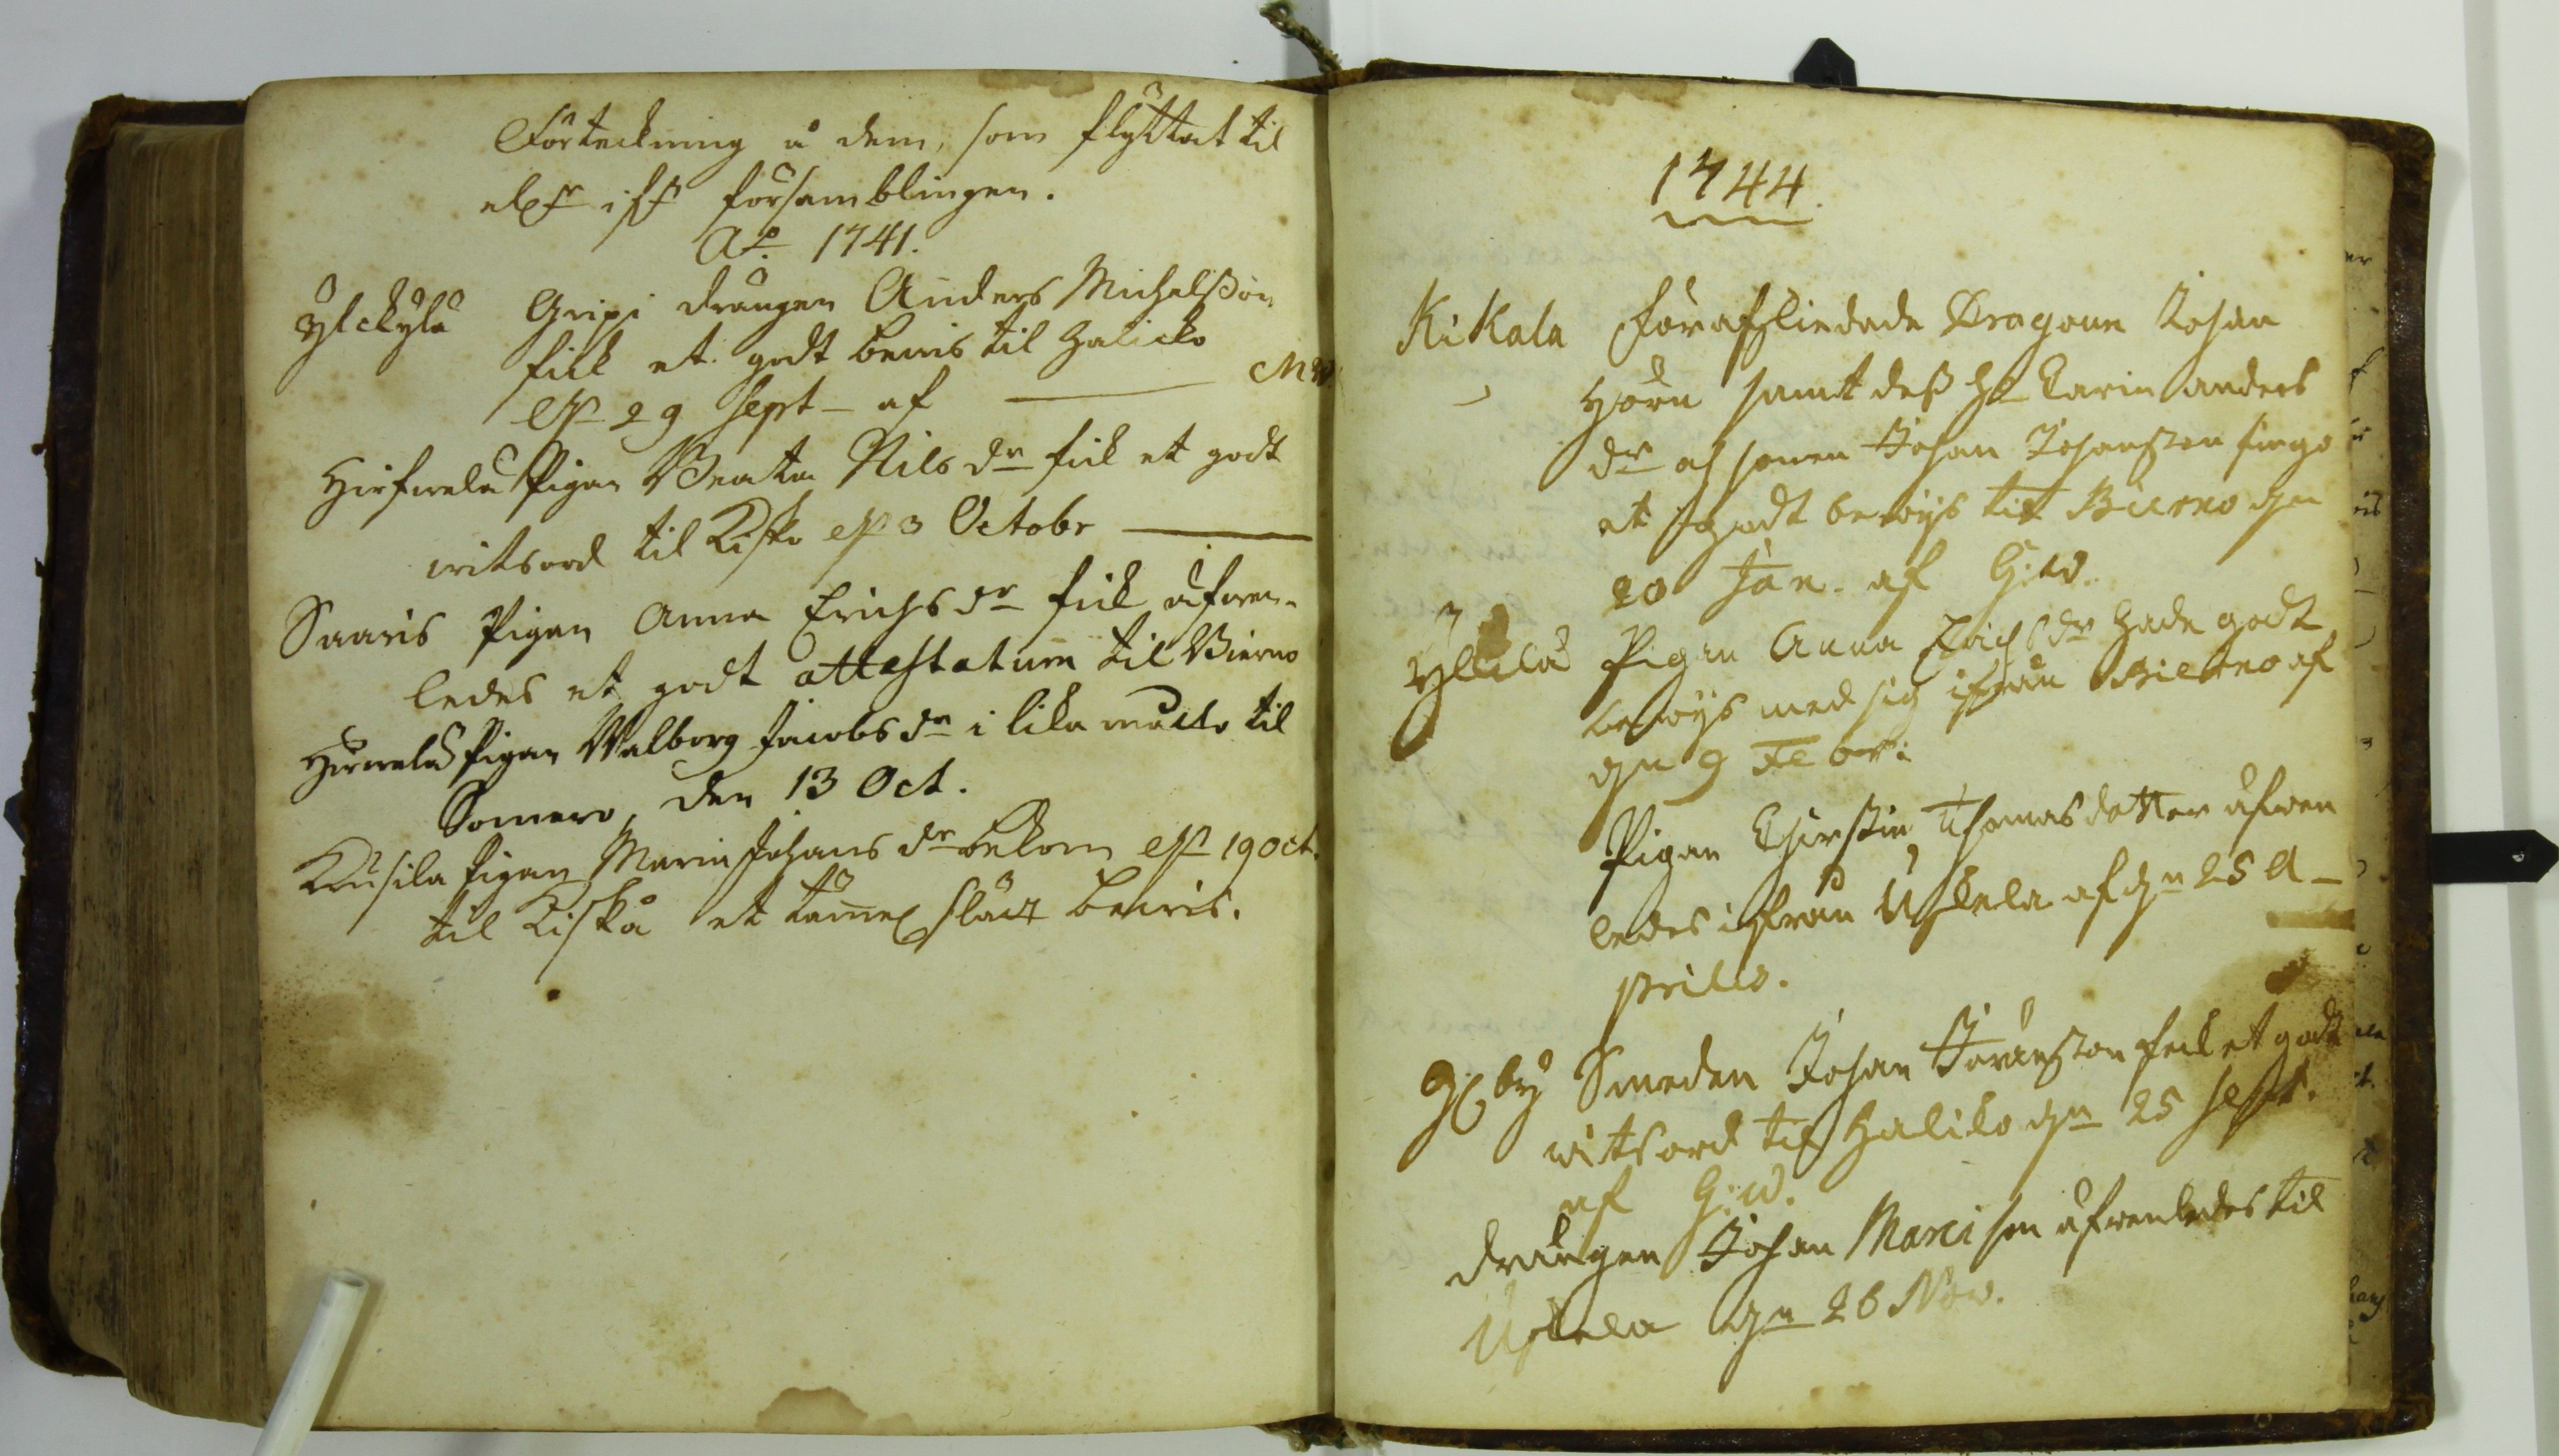 Förteckning å dem, som flyttat til
eller ifr församblingen.
Ao. 1741.
Ylckylä Gripi drängen Anders Michelsson
fick et godt bewis til Halicko
d 29 Sept – af — MW
Hirfwelä Pigan Beata Nils dr fick et godt
witsord til Kisko d 3 Octobr —
Saaris Pigan Anna Erichs dr fick äfwen-
ledes et godt attestatum til Bierno
Hirwelä Pigan Walborg Jacobs dr i lika motto til
Somero, den 13 Oct.
Kusila Pigan Maria Johans dr bekom d 19 Oct.
til Kisko et slätt bewis.
1744.
Kikala Förafskiedade Dragoun Johan
Hörn samt dess h Carin Anders
dr och sonen Johan Johansson fingo
et godt bewijs til Bierno dn
20 Jan. af G:W.
Pigan Anna Erichs dr hade godt
bewijs med sig ifrån Bierno af
dn 9 Febr:
Pigan Chirstin Thomasdotter äfwen
ledes ifrån Uskela af dn 25 A-
prilis.
by Smeden Johan Göransson feck et godt
witsord til Haliko dn 25 Sept.
af G:W.
Drängen Johan Marci son äfwenledes til
Uskela dn 26 Nov.